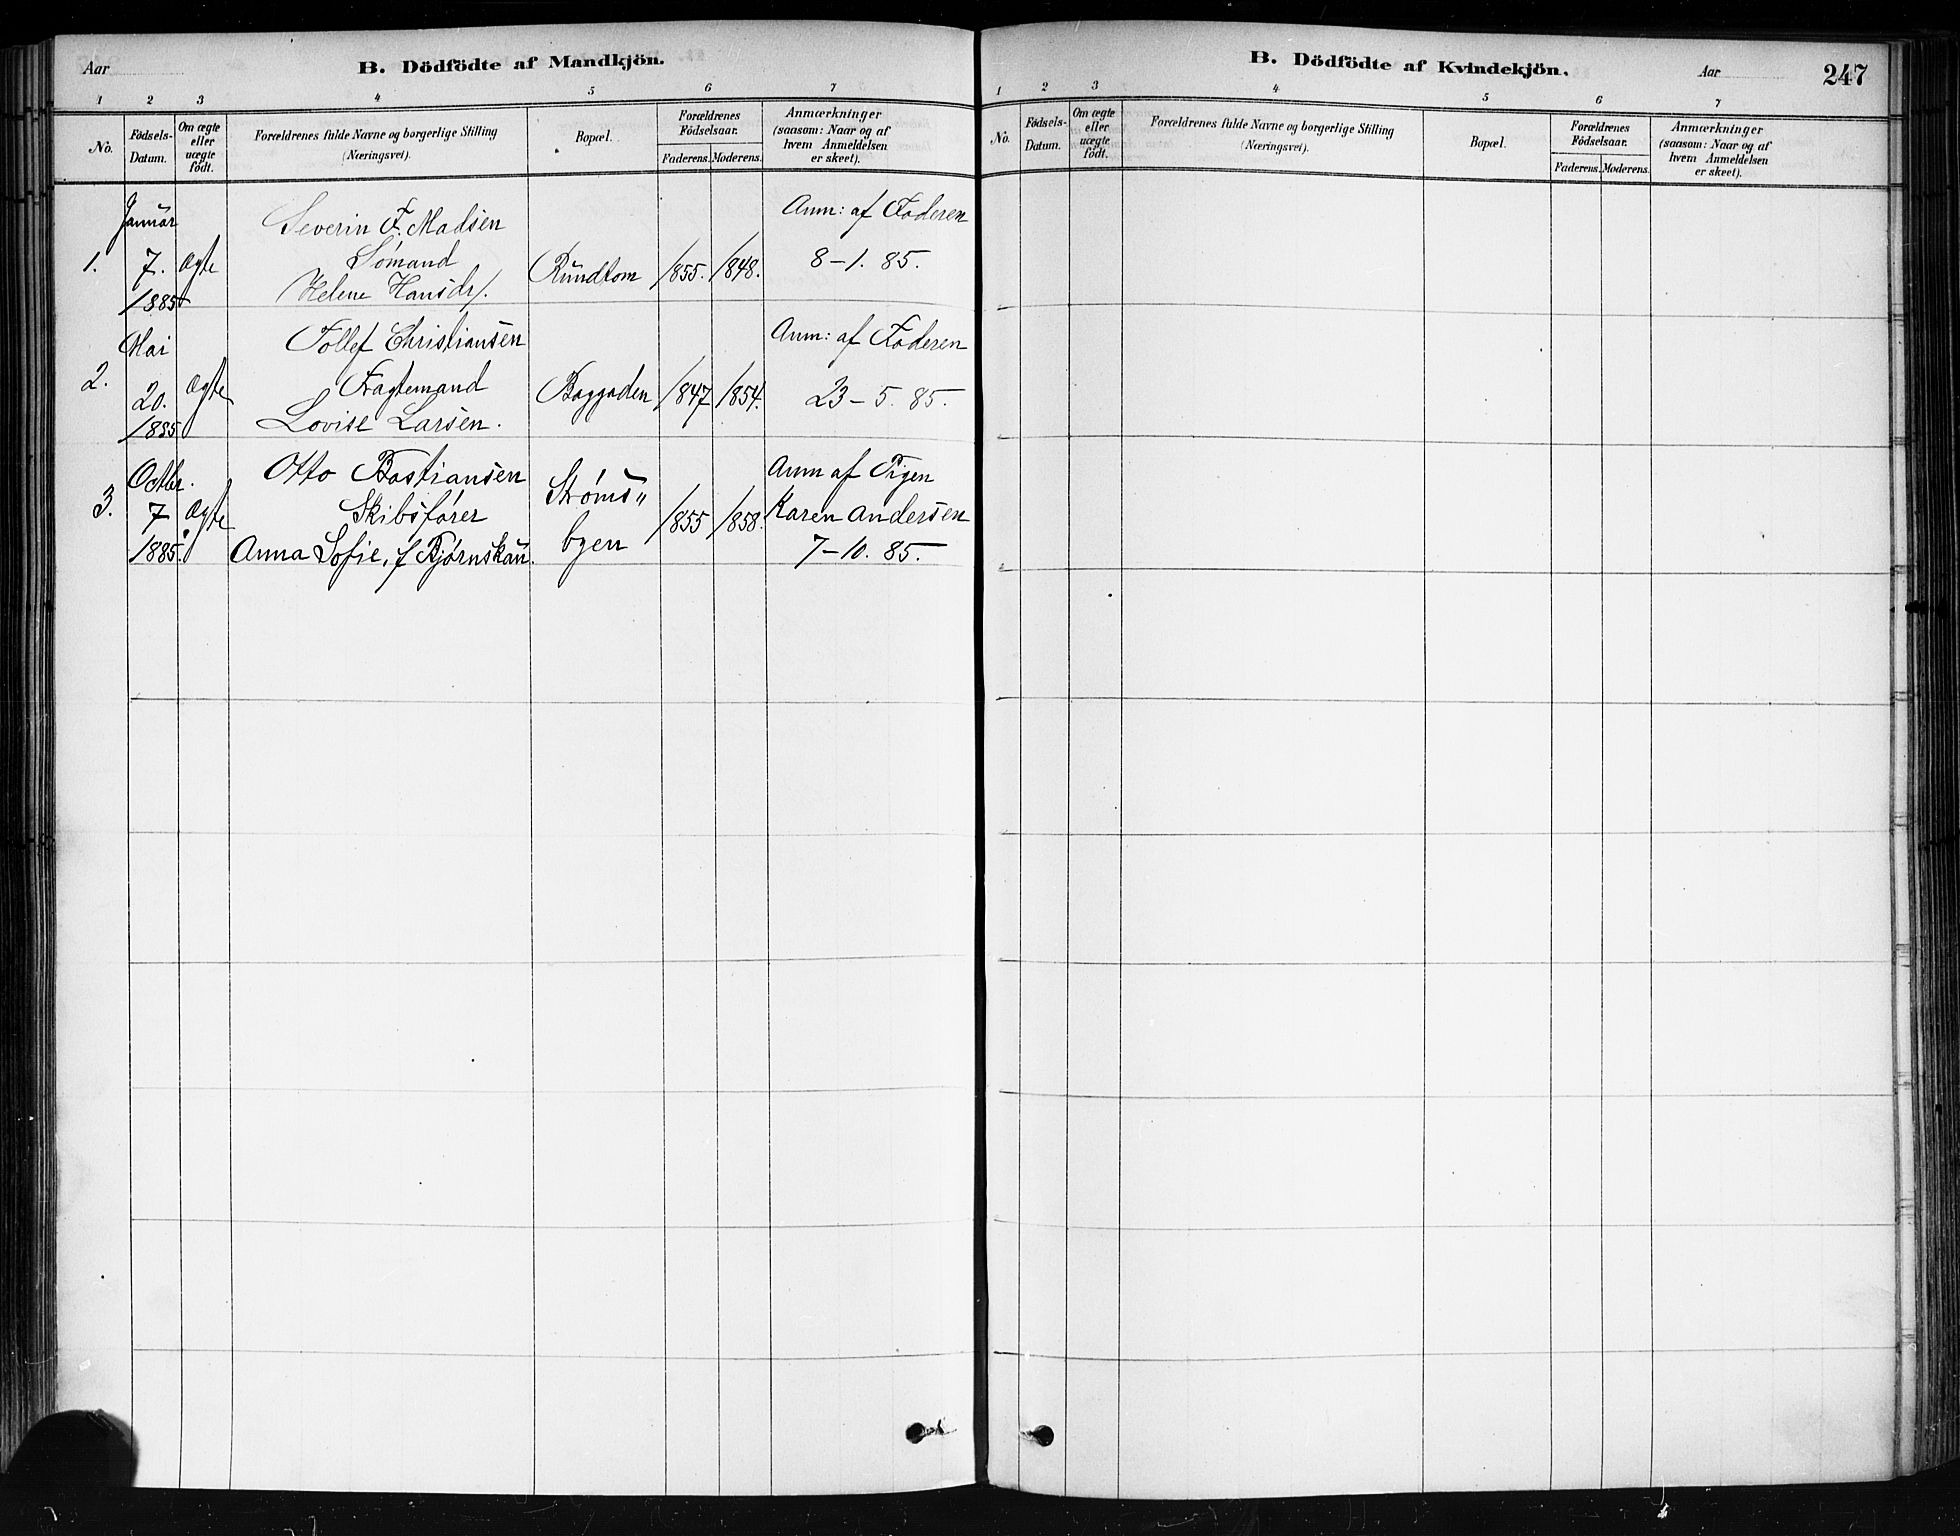 Aar
B. Dödfödte af Mandkjön.
1 2 3 4 5 6 7
No.
Födsels-Datum.
Om ægte eller uægte födt.
Forældrenes fulde Navne og borgerlige Stilling (Næringsvei).
Bopæl.
Forældrenes Födselsaar.
Faderens. Moderens.
Anmærkninger (saasom: Naar og af hvem Anmeldelsen er skeet).
1.
Januar
7.
1885
Ægte
Severin F. Madsen
Sømand
Helene Hansdr.
Rundtom
1855. 1848.
Anm: af Faderen
8-1. 85.
2.
Mai
20.
1885
Ægte
Tollef Christiansen
Fragtemand
Lovise Larsen.
Baggaden
1847 1854.
Anm: af Faderen
23-5. 85.
3.
Octbr.
7
1885.
Ægte
Otto Bastiansen
Skibsfører
Anna Sofie, f Bjørnskau.
Strøms"
byen
1855 1858.
Anm af Pigen
Karen Andersen
7-10. 85.
B. Dödfödte af Kvindekjön.
Aar
247
1 2 3 4 5 6 7
No.
Födsels-Datum.
Om ægte eller uægte födt.
Forældrenes fulde Navne og borgerlige Stilling (Næringsvei).
Bopæl.
Forældrenes Födselsaar.
Faderens. Moderens.
Anmærkninger (saasom: Naar og af hvem Anmeldelsen er skeet).